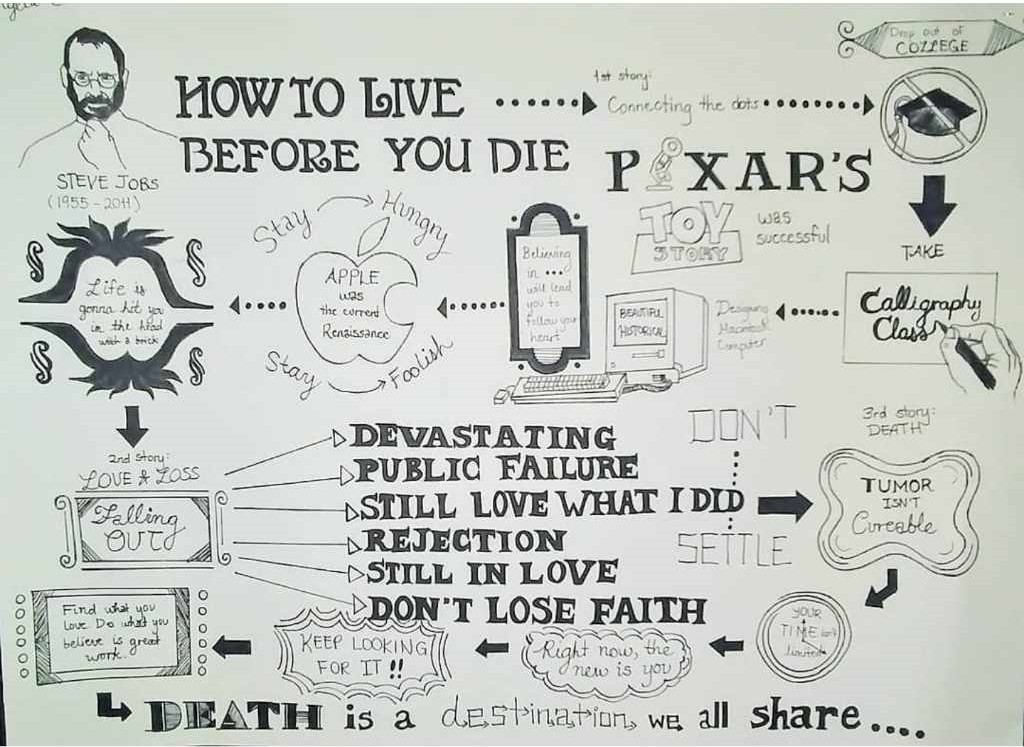 HOW TO LIVE
BEFORE YOU DIE
STEVE JOBS
(1955 - 2011)
1st story:
Connecting the dots
Drop out of
COLLEGE
TAKE
Calligraphy
Class
PIXAR'S
TOY
STORY
was
successful
Designing
Macintosh
Computer
BEAUTIFUL
HISTORICAL
Believing
in ...
will lead
you to
follow your
heart
Stay Hungry
APPLE
was
the current
Renaissance
Stay Foolish
Life is
gonna hit you
in the head
with a brick
2nd story:
LOVE & LOSS
Falling
OUT
DEVASTATING
PUBLIC FAILURE
STILL LOVE WHAT I DID
REJECTION
STILL IN LOVE
DON'T LOSE FAITH
DON'T
SETTLE
3rd story:
DEATH
TUMOR
ISN'T
Cureable
YOUR
TIME
limited
Right now, the
new is you
KEEP LOOKING
FOR IT !!
Find what you
love. Do what you
believe is great
work.
DEATH is a destination we all share....